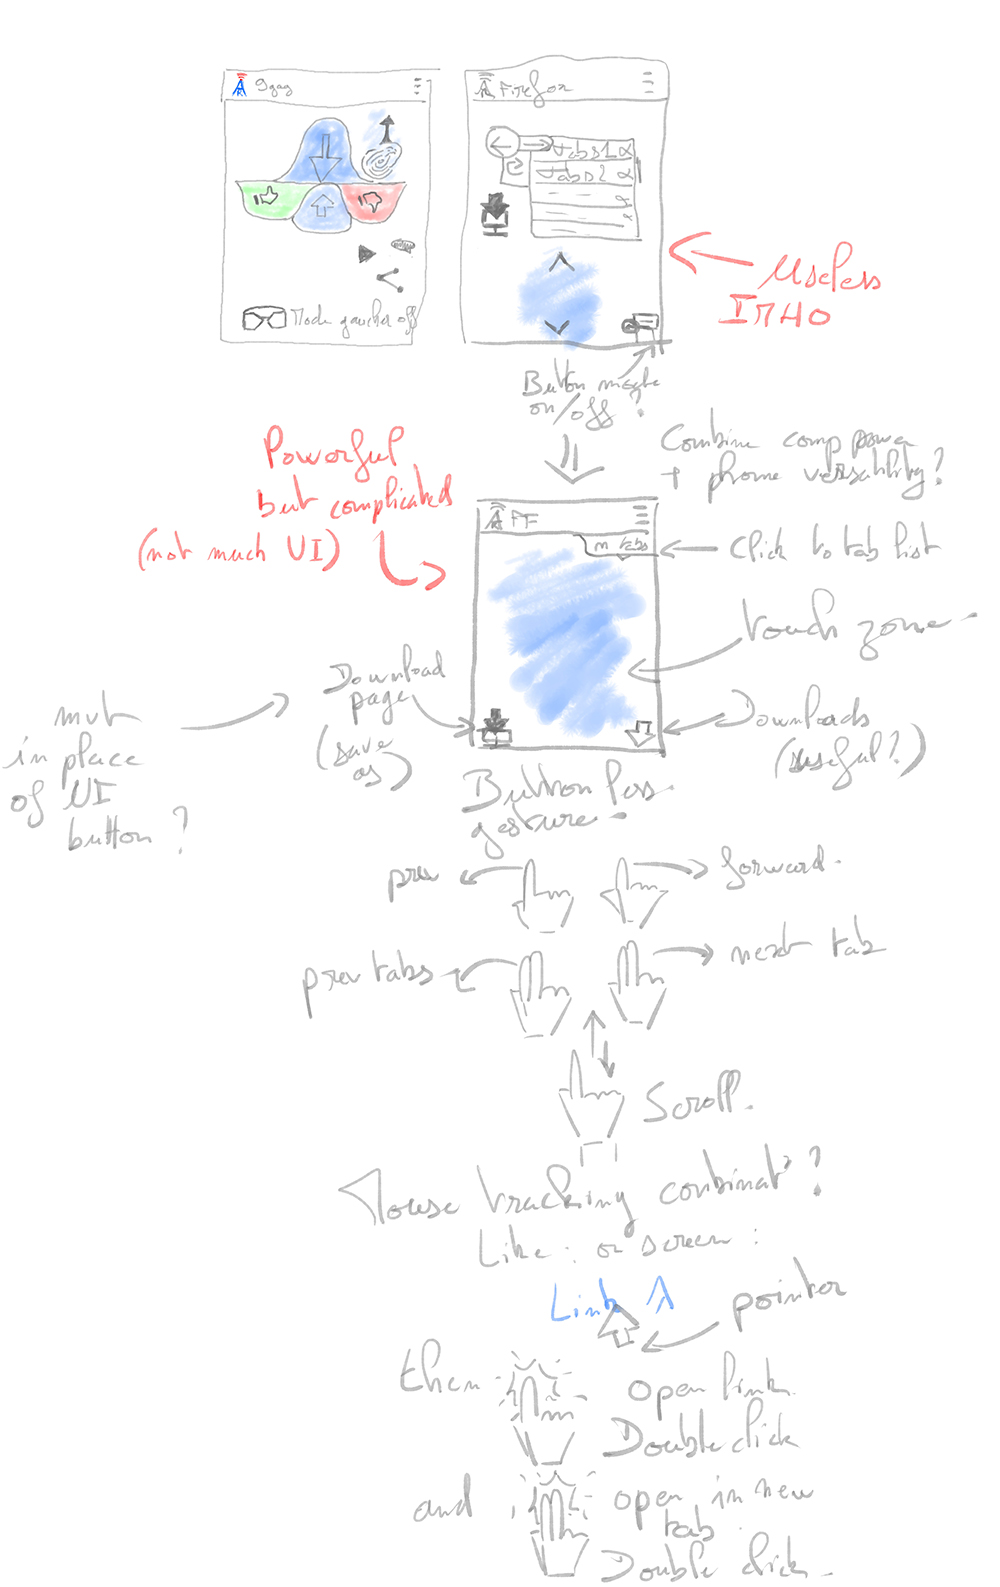 9gag
Firefox
Tabs 1 x
Tabs 2 x
Mode gaucher off
Useless
IMHO
Button maybe
on/off ?
Combine comp power
+ phone versatility ?
Powerful
but complicated
(not much UI)
FF
m tabs
Click to tab list
touch zone -
Download
page
(save
as)
Downloads
(useful ?)
in place
of UI
button ?
Button less
gesture -
prev
forward.
prev tabs
next tab
Scroll.
Mouse tracking combinat° ?
Like : on screen :
Link 1
pointer
then
open link
Double click
and
open in new
tab
Double click.